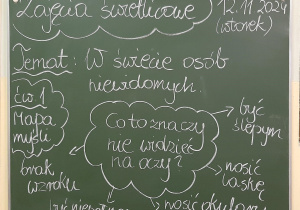 Zajęcia świetlicowe
12.11.2024
(wtorek)
Temat: W świecie osób
niewidomych.
ćw 1
Mapa
myśli
Co to znaczy
nie widzieć
na oczy?
być
ślepym
brak
wzroku
nosić
laskę
nosić okulary
być